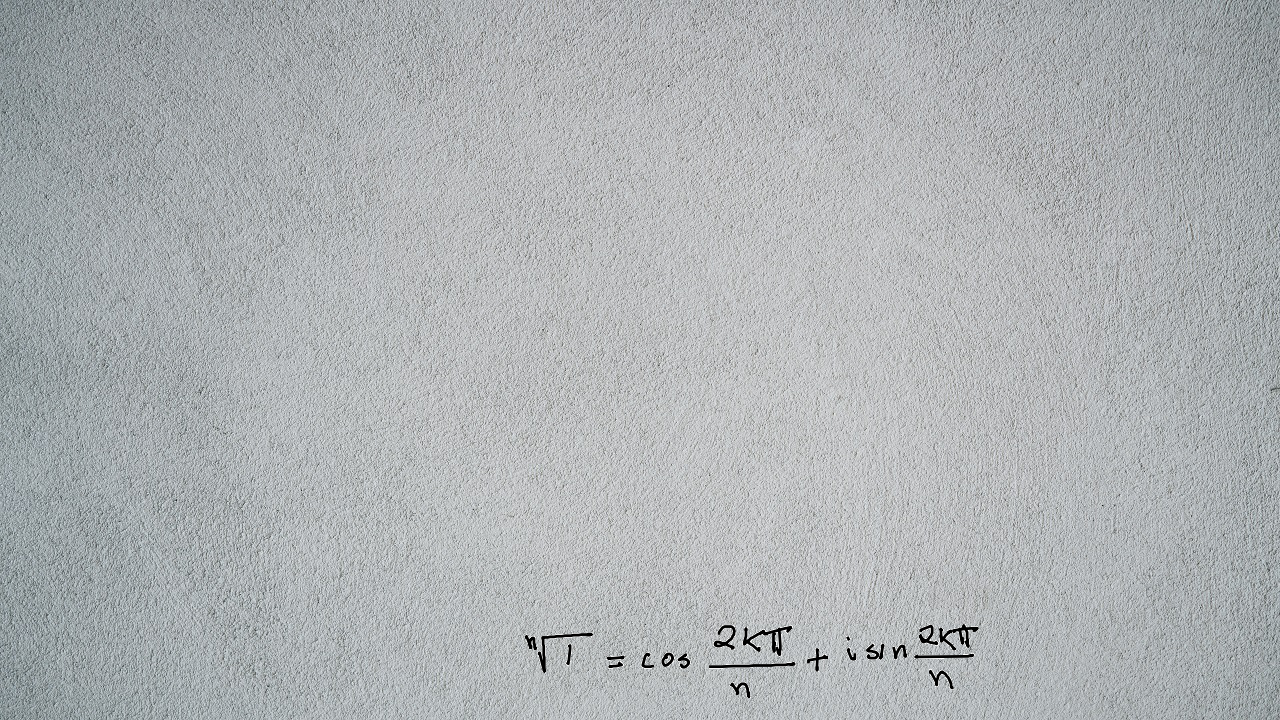 $\sqrt[n]{1} = \cos \frac{2k\pi}{n} + i \sin \frac{2k\pi}{n}$